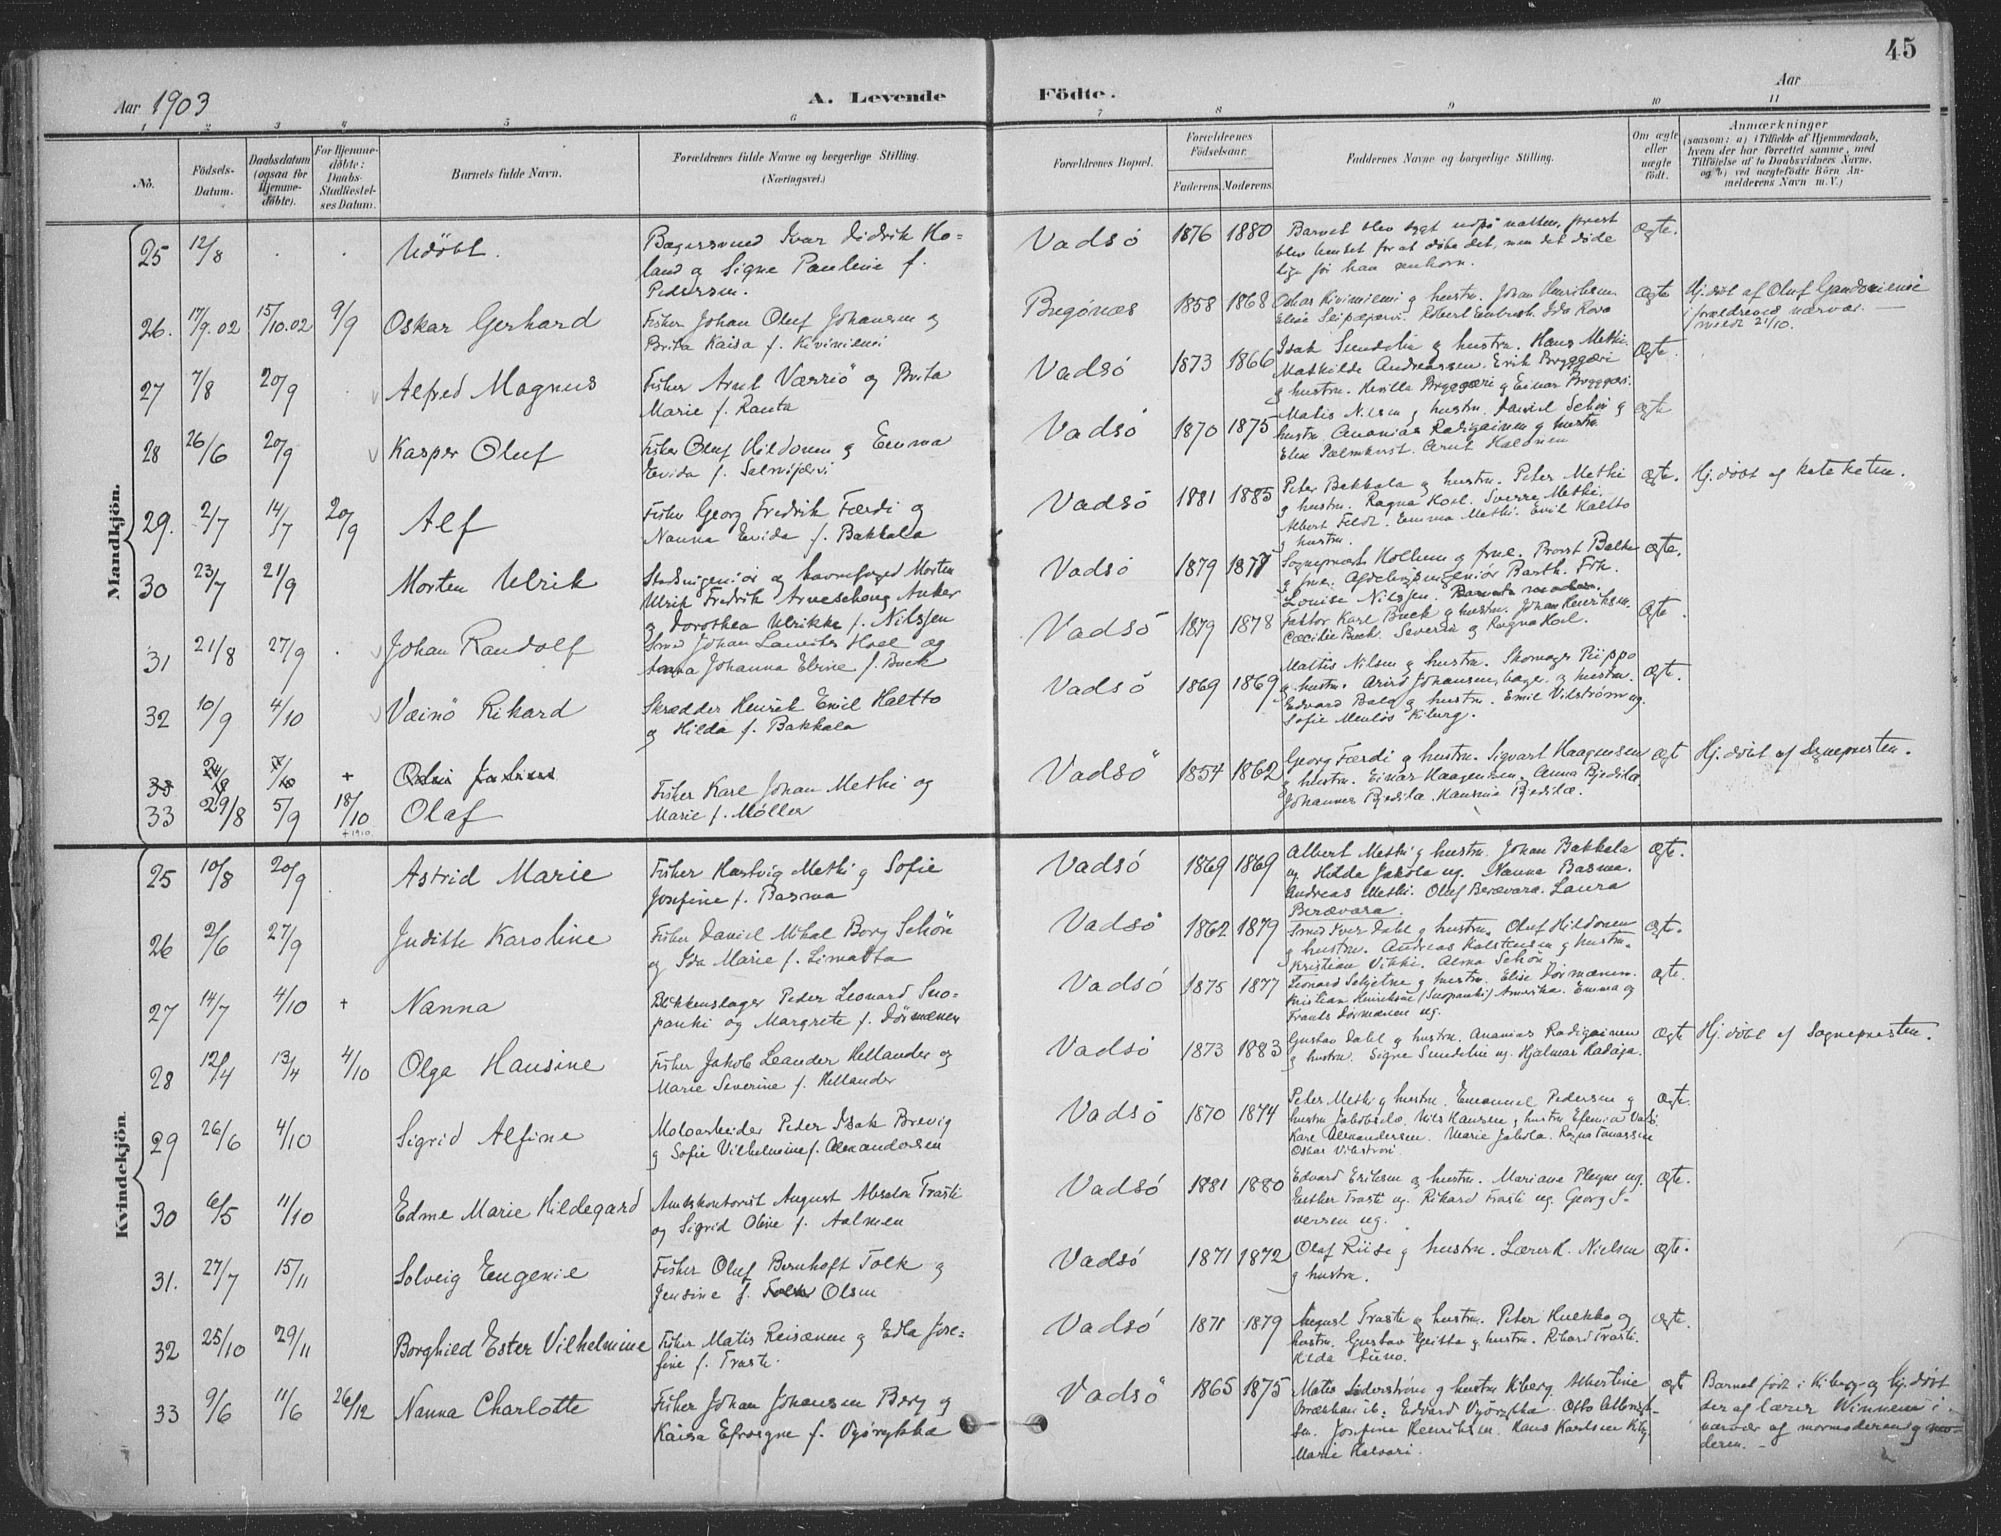 45
Aar 1903
A. Levende
Födte.
Aar
1 2 3 4 5 6 7 8 9 10 11
No.
Födsels-Datum.
Daabsdatum (ogsaa for Hjemme-döbte).
For Hjemme-döbte: Daabs-Stadfæstel-ses Datum.
Barnets fulde Navn.
Forældrenes fulde Navne og borgerlige Stilling.
(Næringsvei.)
Forældrenes Bopæl.
Forældrenes Födselsaar.
Faderens. Moderens.
Faddernes Navne og borgerlige Stilling.
Om ægte eller uægte födt.
Anmærkninger
(saasom: a) i Tilfælde af Hjemmedaab,
hvem der har forrettet samme, med
Tilföielse af to Daabsvidners Navne,
og b) ved uægtefödte Börn An-
melderens Navn m. V.)
Mandkjön.
25 12/8 . . Udöbt.
Bagersvend Ivar Didrik Ho-
land og Signe Pauline f.
Pedersen.
Vadsö 1876 1880
Barnet blev sygt udpå natten, prest
blev hentet for at döbe det, men det döde
lige för han ankom.
Ægte.
26. 17/9.02 15/10.02 9/9 Oskar Gerhard
Fisker Johan Oluf Johansen og
Brita Kaisa f. Kiviniemi
Bugönæs 1858 1868
Oskar Kiviniemi g hustru. Johan Henriksen
Ægte
Hj. döbt af Oluf
27 7/8 20/9 Alfred Magnus
Fisker Arnt Værriö og Brita
Marie f. Ranta
Vadsö 1873 1866
Isak Sundelin g hustru. Hans Methi.
Mathilde Andreassen. Erik Bryggæri
g hustru. g Einar Bryggæri.
Ægte
28 26/6 20/9 Kasper Oluf
Fisker Oluf Hildonen g Emma
Evida f. Salmijærvi
Vadsö 1870 1875
Matis Nilsen g hustru. Daniel Schön g
hustru Ananias Radigainen g hustru
Elise Palmkvist. Arnt Halonen
ægte
29. 2/7 14/7 20/9 Alf
Fisker Georg Fredrik Færdi og
Nanna Evida f. Bakkala
Vadsö 1881 1885
Peter Bakkala g hustru. Peter Methi
g hustru. Ragna Koil. Sverre Methi.
Albert Feldt. Emma Methi. Emil Kaltto
g hustru.
Ægte.
Hj. döbt af kateketen.
30 23/7 21/9 Morten Ulrik
Stadsingeniör og havnefoged Morten
Ulrik Fredrik Anker
og Dorothea Ulrikke f. Nilssen
Vadsö 1879 1877
Sogneprest Hollum g frue. Provst Balke
g frue. Afdelingsingeniör Barth. Frk.
Louise Nilssen.
Ægte.
31 21/8 27/9 . Johan Randolf
Smed Johan Lauritz Hoel og
Anna Johanna Elvine f. Buck
Vadsö 1879 1878
Faktor Karl Buck g hustru. Johan Henriksen.
Cæcilie Buck. Severin og Ragna Koil.
Ægte
32 10/9 4/10 Væinö Rikard
Skrædder Henrik Emil Kaltto
og Hilda f. Bakkala
Vadsö 1869 1869
Mattis Nilsen g hustru. Skomager Piippo
g hustru. Arvid Johansen, bager. g hustru.
Edvard Bala g hustru. Emil Vilström ug.
Sofie Kiberg.
Ægte.
33
33 29/8 5/9 18/10 Olaf
+1910.
Fisker Karl Johan Methi og
Marie f. Möller
Vadsö 1854 1862
Georg Færdi g hustru. Sigvart Haagensen
g hustru. Einar Haagensen. Anna Bjedilæ.
Johannes Bjedilæ. Hansine Bjedilæ.
Ægt
Hj. döbt af Sognepresten.
Kvindekjön.
25 10/8 20/9 Astrid Marie
Fisker Hartvig Methi g Sofie
Josefine f. Basma
Vadsö 1869 1869
Albert Methi g hustru. Johan Bakkala
ug. Hilda Jakola ug. Nanna Basma.
Andreas Methi. Oluf Berævara. Laura
Berævara.
Ægte.
26 2/6 27/9 Judith Karoline
Fisker Daniel Mikal Borg Schön
og Ida Marie f. Limatta
Vadsö 1862 1879
Smed Iver Dahl g hustru. Oluf Hildonen
g hustru. Andreas Karlstensen g hustru.
Kristian Vikki. Alma Schön
Ægte.
27 14/7 4/10 + Nanna
Blikkenslager Peder Leonard Suo-
panki og Margrete f. Dörmænen
Vadsö 1875 1877
Leonard Schjelne g hustru. Elise Dörmænen.
Kristian Henriksen (Suopanki) Amerika. Emma og
Frants Dörmænen ug.
Ægte.
28 12/4 13/4 4/10 Olga Hansine
Fisker Jakob Leander Hellander og
Marie Severine f. Hellander
Vadsö 1873 1883
Gustav Dahl g hustru. Ananias Radigainen
g hustru. Signe Sundelin ug. Hjalmar Radiga.
Ægte
Hj. döbt af Sognepresten.
29 26/6 4/10 Sigrid Alfine
Moloarbeider Peder Isak Brevig
g Sofie Vilhelmine f. Alexandersen
Vadsö 1870 1874
Peter Methi g hustru. Emanuel Pedersen g
hustru Jakobselv. Nils Hansen g hustru Efemia Vadsö
Karl Alexandersen. Marie Jakola. Ragna Tomassen
Oskar Vikström
Ægte.
30 6/5 11/10 Edme Marie Hildegard
Amtskontorist August Absalon Trasti
og Sigrid Oline f. Aalmen
Vadsö 1881 1880
Edvard Eriksen og hustru. Mariane Pleym ug.
Esther Trasti ug. Rikard Trasti ug. Georg I-
versen ug.
Ægte.
31. 27/7 15/11 Solveig Eugenie
Fisker Oluf Bernhoft Folk g
Jensine f. Olsen
Vadsö 1871 1872
Olaf Riise g hustru. Lærer K. Nielsen
g hustru.
Ægte.
32 25/10 29/11 Borghild Ester Vilhelmine
Fisker Matis Reisænen g Edla Jose-
fine f. Trasti.
Vadsö 1871 1879
August Trasti g hustru. Peter Kukko og
hustru. Gustav g hustru. Rikard Trasti.
Hilda
Ægte.
33 9/6 11/6 26/12 Nanna Charlotte
Fisker Johan Johansen Berg g
Kaisa Efrosyne f. Vyörykka
Vadsö 1865 1875
Matis Söderström g hustru Kiberg. Albertine
Brækhan ib. Edvard Vyörykka. Otto Albrigt-
sen. Josefine Henriksen. Hans Karlsen Kbg.
Marie Halvari.
ægte
Barnet födt i Kiberg og hj. döbt
der af lærer Winnem i
nærvær af mormoderen g mo-
deren.